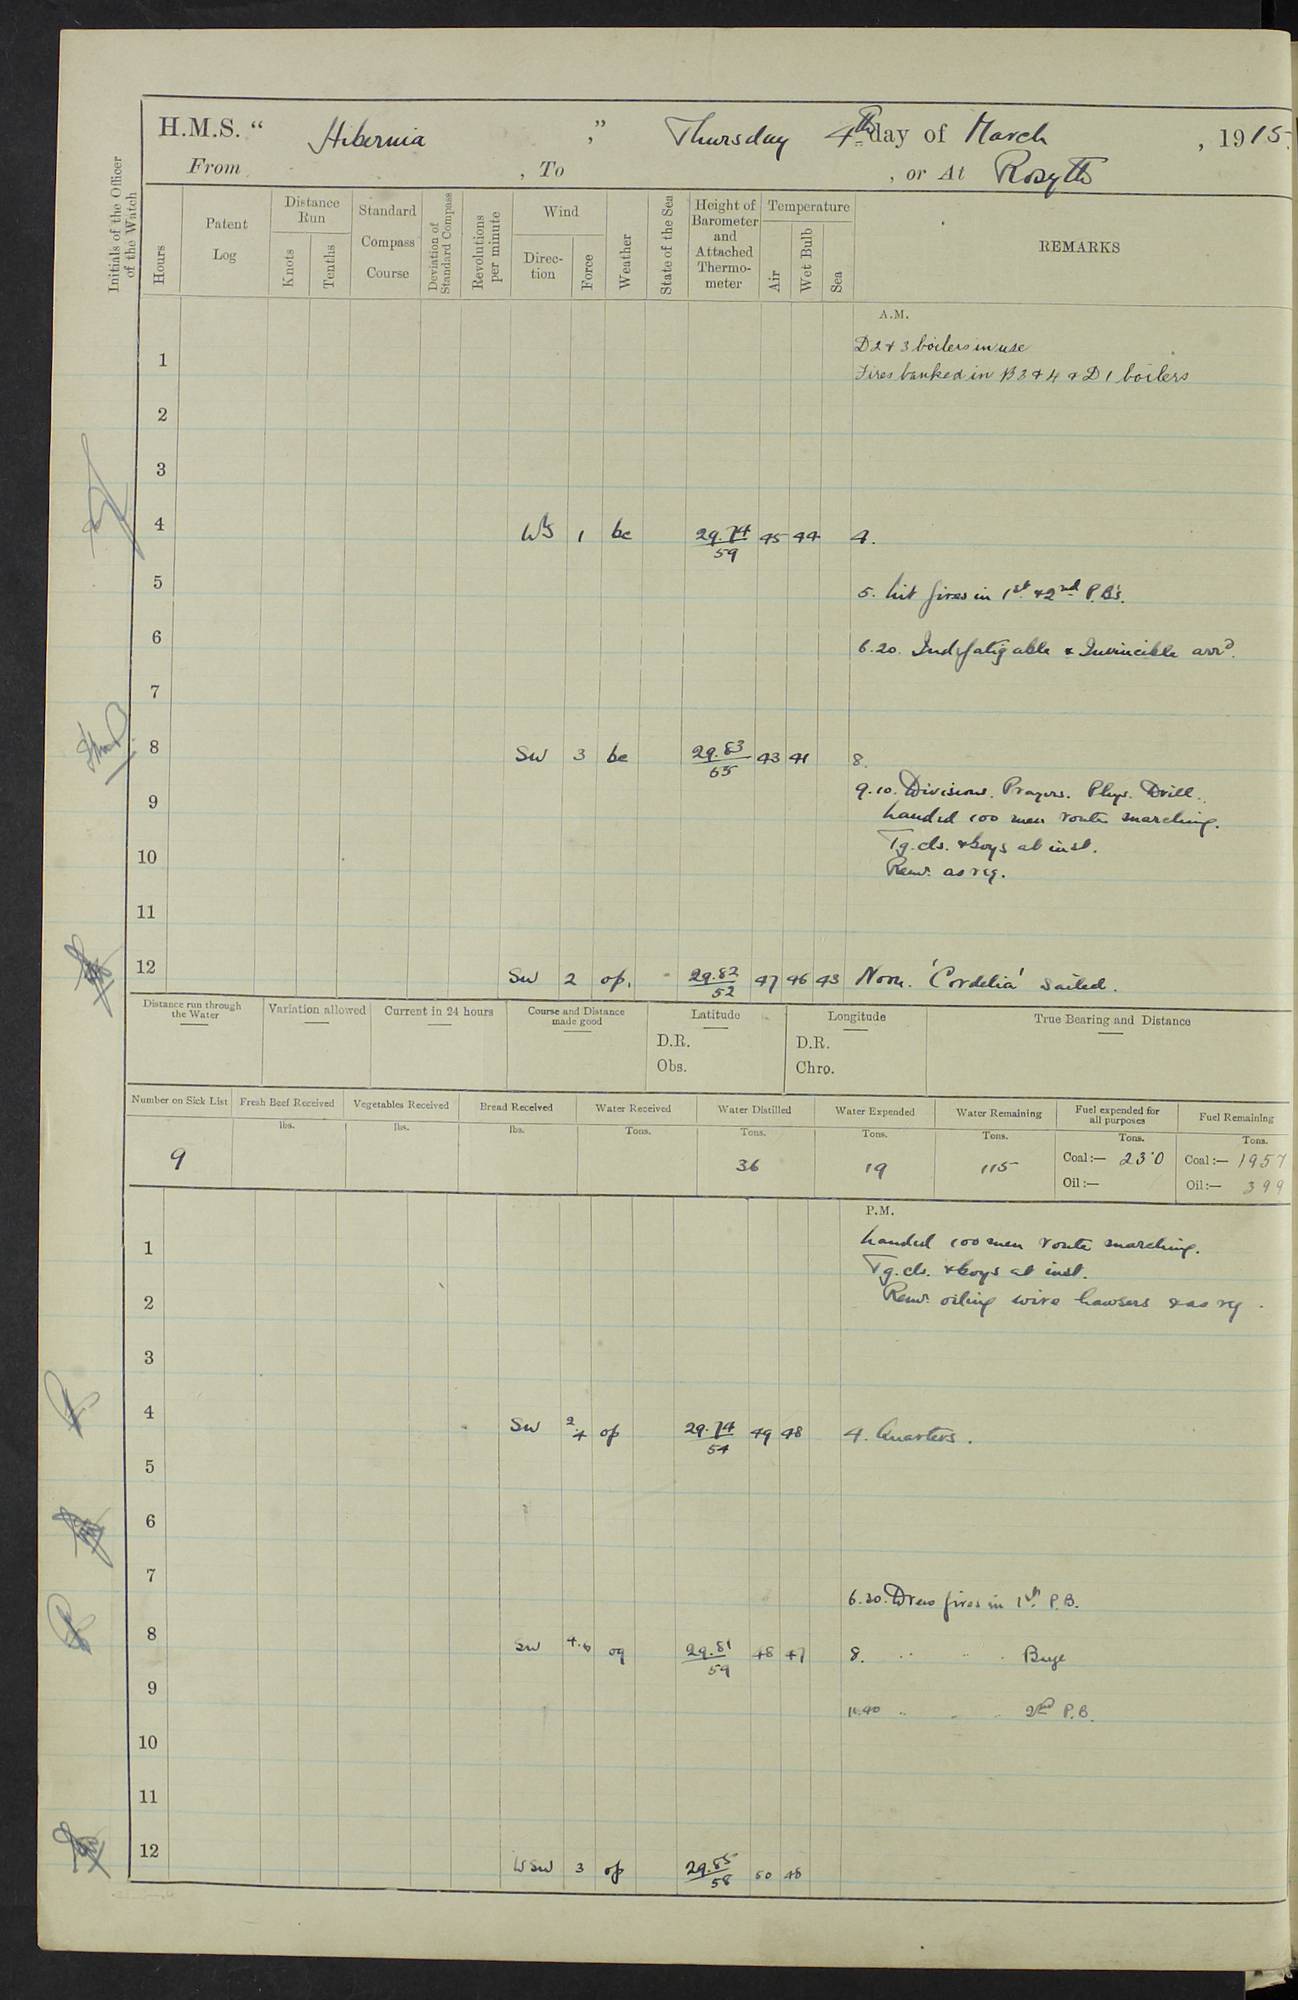 H.M.S. “ Hibernia ,” Thursday 4th day of March , 1915.
From , To , or At Rosyth
Initials of the Officer of the Watch
Hours
Patent Log
Distance Run
Knots
Tenths
Standard Compass Course
Deviation of Standard Compass
Revolutions per minute
Wind
Direction
Force
Weather
State of the Sea
Height of Barometer and Attached Thermometer
Temperature
Air
Wet Bulb
Sea
REMARKS
A.M.
D 2 & 3 boilers in use
1
Fires banked in B 3 & 4 & D 1 boilers
2
3
4 WbS 1 bc 29.74/59 45 44 4.
5 5. Lit fires in 1st & 2nd P.B's.
6 6.20. Indefatigable & Invincible arrd.
7
8 SW 3 bc 29.83/65 43 41 8.
9.10. Divisions. Prayers. Phys. Drill.
9 Landed 100 men route marching.
Tg. cls. & boys at inst.
10 Remr. as reqd.
11
12 SW 2 op. 29.82/52 47 46 43 Noon. 'Cordelia' sailed.
Distance run through the Water
Variation allowed
Current in 24 hours
Course and Distance made good
Latitude
D.R.
Obs.
Longitude
D.R.
Chro.
True Bearing and Distance
Number on Sick List
Fresh Beef Received
Vegetables Received
Bread Received
Water Received
Water Distilled
Water Expended
Water Remaining
Fuel expended for all purposes
Fuel Remaining
lbs. lbs. lbs. Tons. Tons. Tons. Tons. Tons. Tons.
9 36 19 115 Coal :— 23.0 Coal :— 1957
Oil :— Oil :— 399
P.M.
1 Landed 100 men route marching.
Tg. cls. & boys at inst.
2 Remr. oiling wire hawsers & as req
3
4 SW 2.4 op 29.74/54 49 48 4. Quarters.
5
6
7
6.30. Drew fires in 1st P.B.
8 SW 4.6 oq 29.81/59 48 47 8. " " " Bage
9
11.40 " " " 2nd P.B.
10
11
12 WSW 3 op 29.85/58 50 48